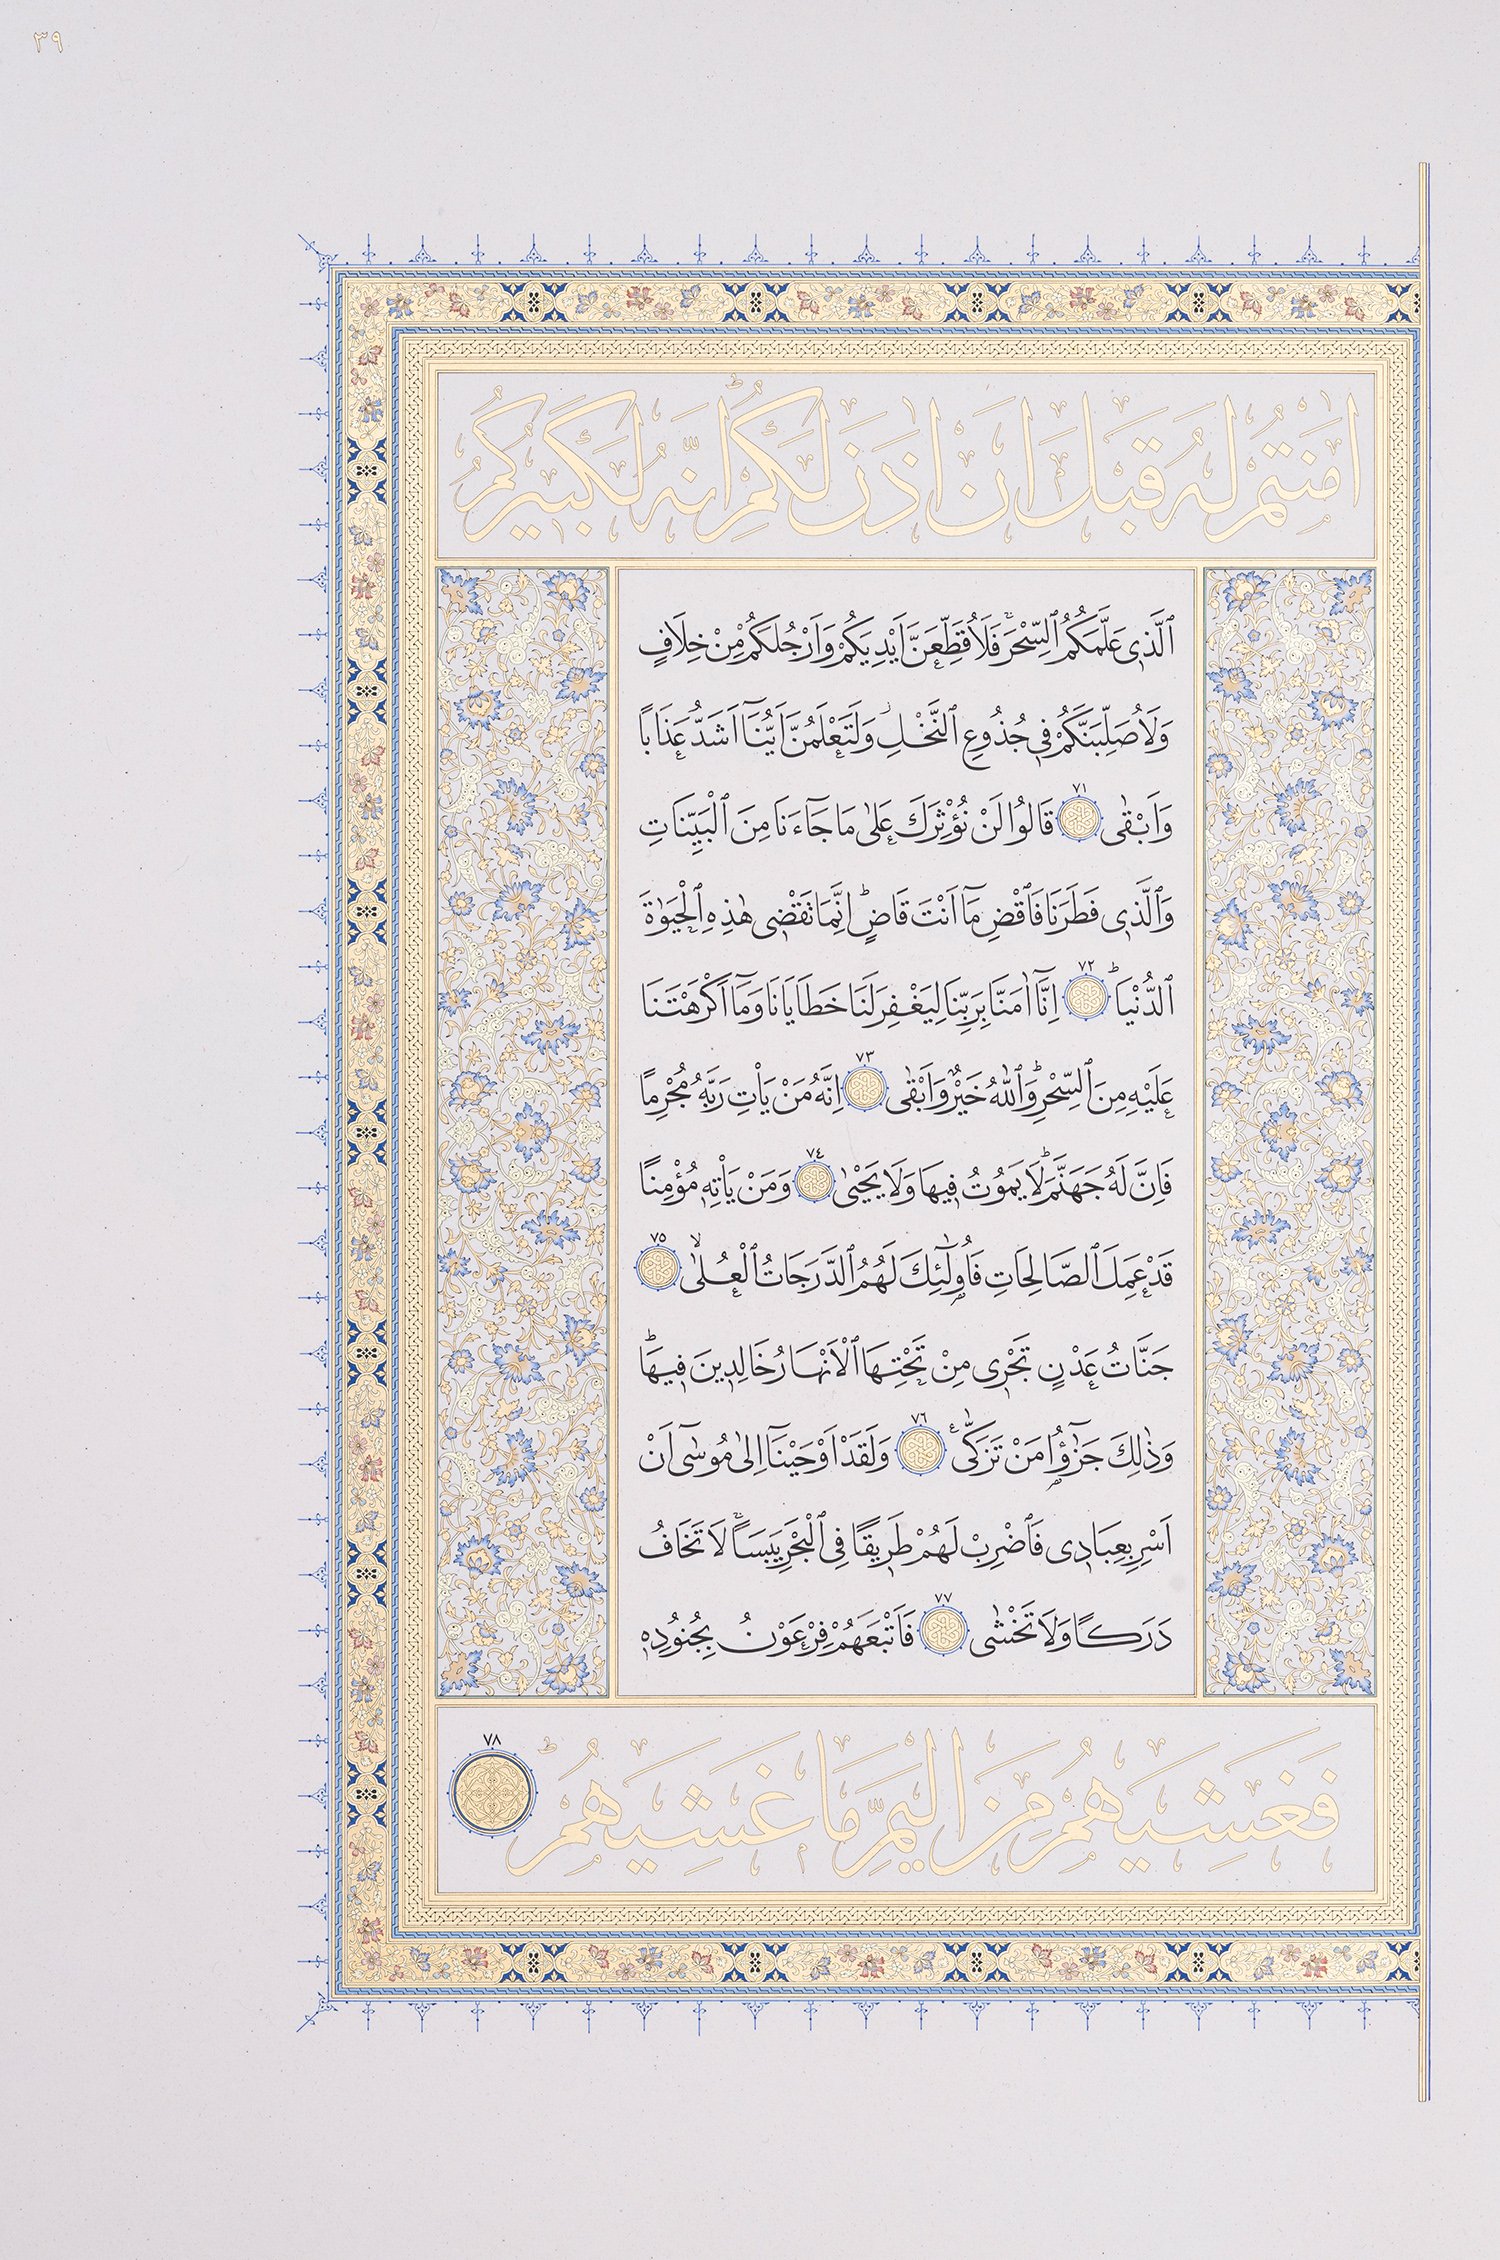 ٣٩
اٰمَنْتُمْ لَهُ قَبْلَ اَنْ اٰذَنَ لَكُمْۜ اِنَّهُ لَكَب۪يرُكُمُ
ٱلَّذ۪ى عَلَّمَكُمُ ٱلسِّحْرَۚ فَلَاُقَطِّعَنَّ اَيْدِيَكُمْ وَاَرْجُلَكُمْ مِنْ خِلَافٍ
وَلَاُصَلِّبَنَّكُمْ ف۪ى جُذُوعِ ٱلنَّخْلِۘ وَلَتَعْلَمُنَّ اَيُّنَٓا اَشَدُّ عَذَابًا
وَاَبْقٰى ٧١ قَالُوا لَنْ نُؤْثِرَكَ عَلٰى مَا جَٓاءَنَا مِنَ ٱلْبَيِّنَاتِ
وَٱلَّذ۪ى فَطَرَنَا فَٱقْضِ مَٓا اَنْتَ قَاضٍۜ اِنَّمَا تَقْض۪ى هٰذِهِ ٱلْحَيٰوةَ
ٱلدُّنْيَاۜ ٧٢ اِنَّٓا اٰمَنَّا بِرَبِّنَا لِيَغْفِرَ لَنَا خَطَايَانَا وَمَٓا اَكْرَهْتَنَا
عَلَيْهِ مِنَ ٱلسِّحْرِۜ وَٱللّٰهُ خَيْرٌ وَاَبْقٰى ٧٣ اِنَّهُ مَنْ يَاْتِ رَبَّهُ مُجْرِمًا
فَاِنَّ لَهُ جَهَنَّمَۜ لَا يَمُوتُ ف۪يهَا وَلَا يَحْيٰى ٧٤ وَمَنْ يَاْتِه۪ مُؤْمِنًا
قَدْ عَمِلَ ٱلصَّالِحَاتِ فَاُو۬لٰٓئِكَ لَهُمُ ٱلدَّرَجَاتُ ٱلْعُلٰىۙ ٧٥
جَنَّاتُ عَدْنٍ تَجْر۪ى مِنْ تَحْتِهَا ٱلْاَنْهَارُ خَالِد۪ينَ ف۪يهَاۜ
وَذٰلِكَ جَزٰٓؤُ۬ا مَنْ تَزَكّٰى۟ ٧٦ وَلَقَدْ اَوْحَيْنَٓا اِلٰى مُوسٰٓى اَنْ
اَسْرِ بِعِبَاد۪ى فَٱضْرِبْ لَهُمْ طَر۪يقًا فِى ٱلْبَحْرِ يَبَسًاۚ لَا تَخَافُ
دَرَكًا وَلَا تَخْشٰى ٧٧ فَاَتْبَعَهُمْ فِرْعَوْنُ بِجُنُودِه۪
فَغَشِيَهُمْ مِنَ الْيَمِّ مَا غَشِيَهُمْۜ ٧٨